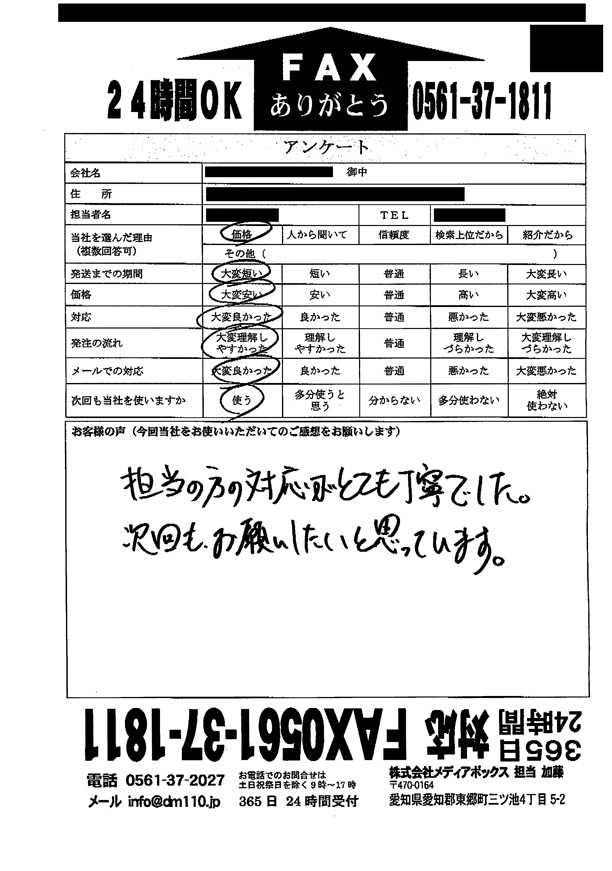 FAX
24時間OK ありがとう 0561-37-1811
アンケート
会社名 御中
住 所
担当者名 TEL
当社を選んだ理由 (複数回答可) 価格 人から聞いて 信頼度 検索上位だから 紹介だから
その他 ( )
発送までの期間 大変短い 短い 普通 長い 大変長い
価格 大変安い 安い 普通 高い 大変高い
対応 大変良かった 良かった 普通 悪かった 大変悪かった
発注の流れ 大変理解しやすかった 理解しやすかった 普通 理解しづらかった 大変理解しづらかった
メールでの対応 大変良かった 良かった 普通 悪かった 大変悪かった
次回も当社を使いますか 使う 多分使うと思う 分からない 多分使わない 絶対使わない
お客様の声 (今回当社をお使いいただいてのご感想をお願いします)
担当の方の対応がとても丁寧でした。
次回も、お願いしたいと思っています。
365日24時間対応 FAX0561-37-1811
電話 0561-37-2027 お電話でのお問合せは土日祝祭日を除く9時~17時
メール info@dm110.jp 365日 24時間受付
株式会社メディアボックス 担当 加藤
〒470-0164
愛知県愛知郡東郷町三ツ池4丁目5-2